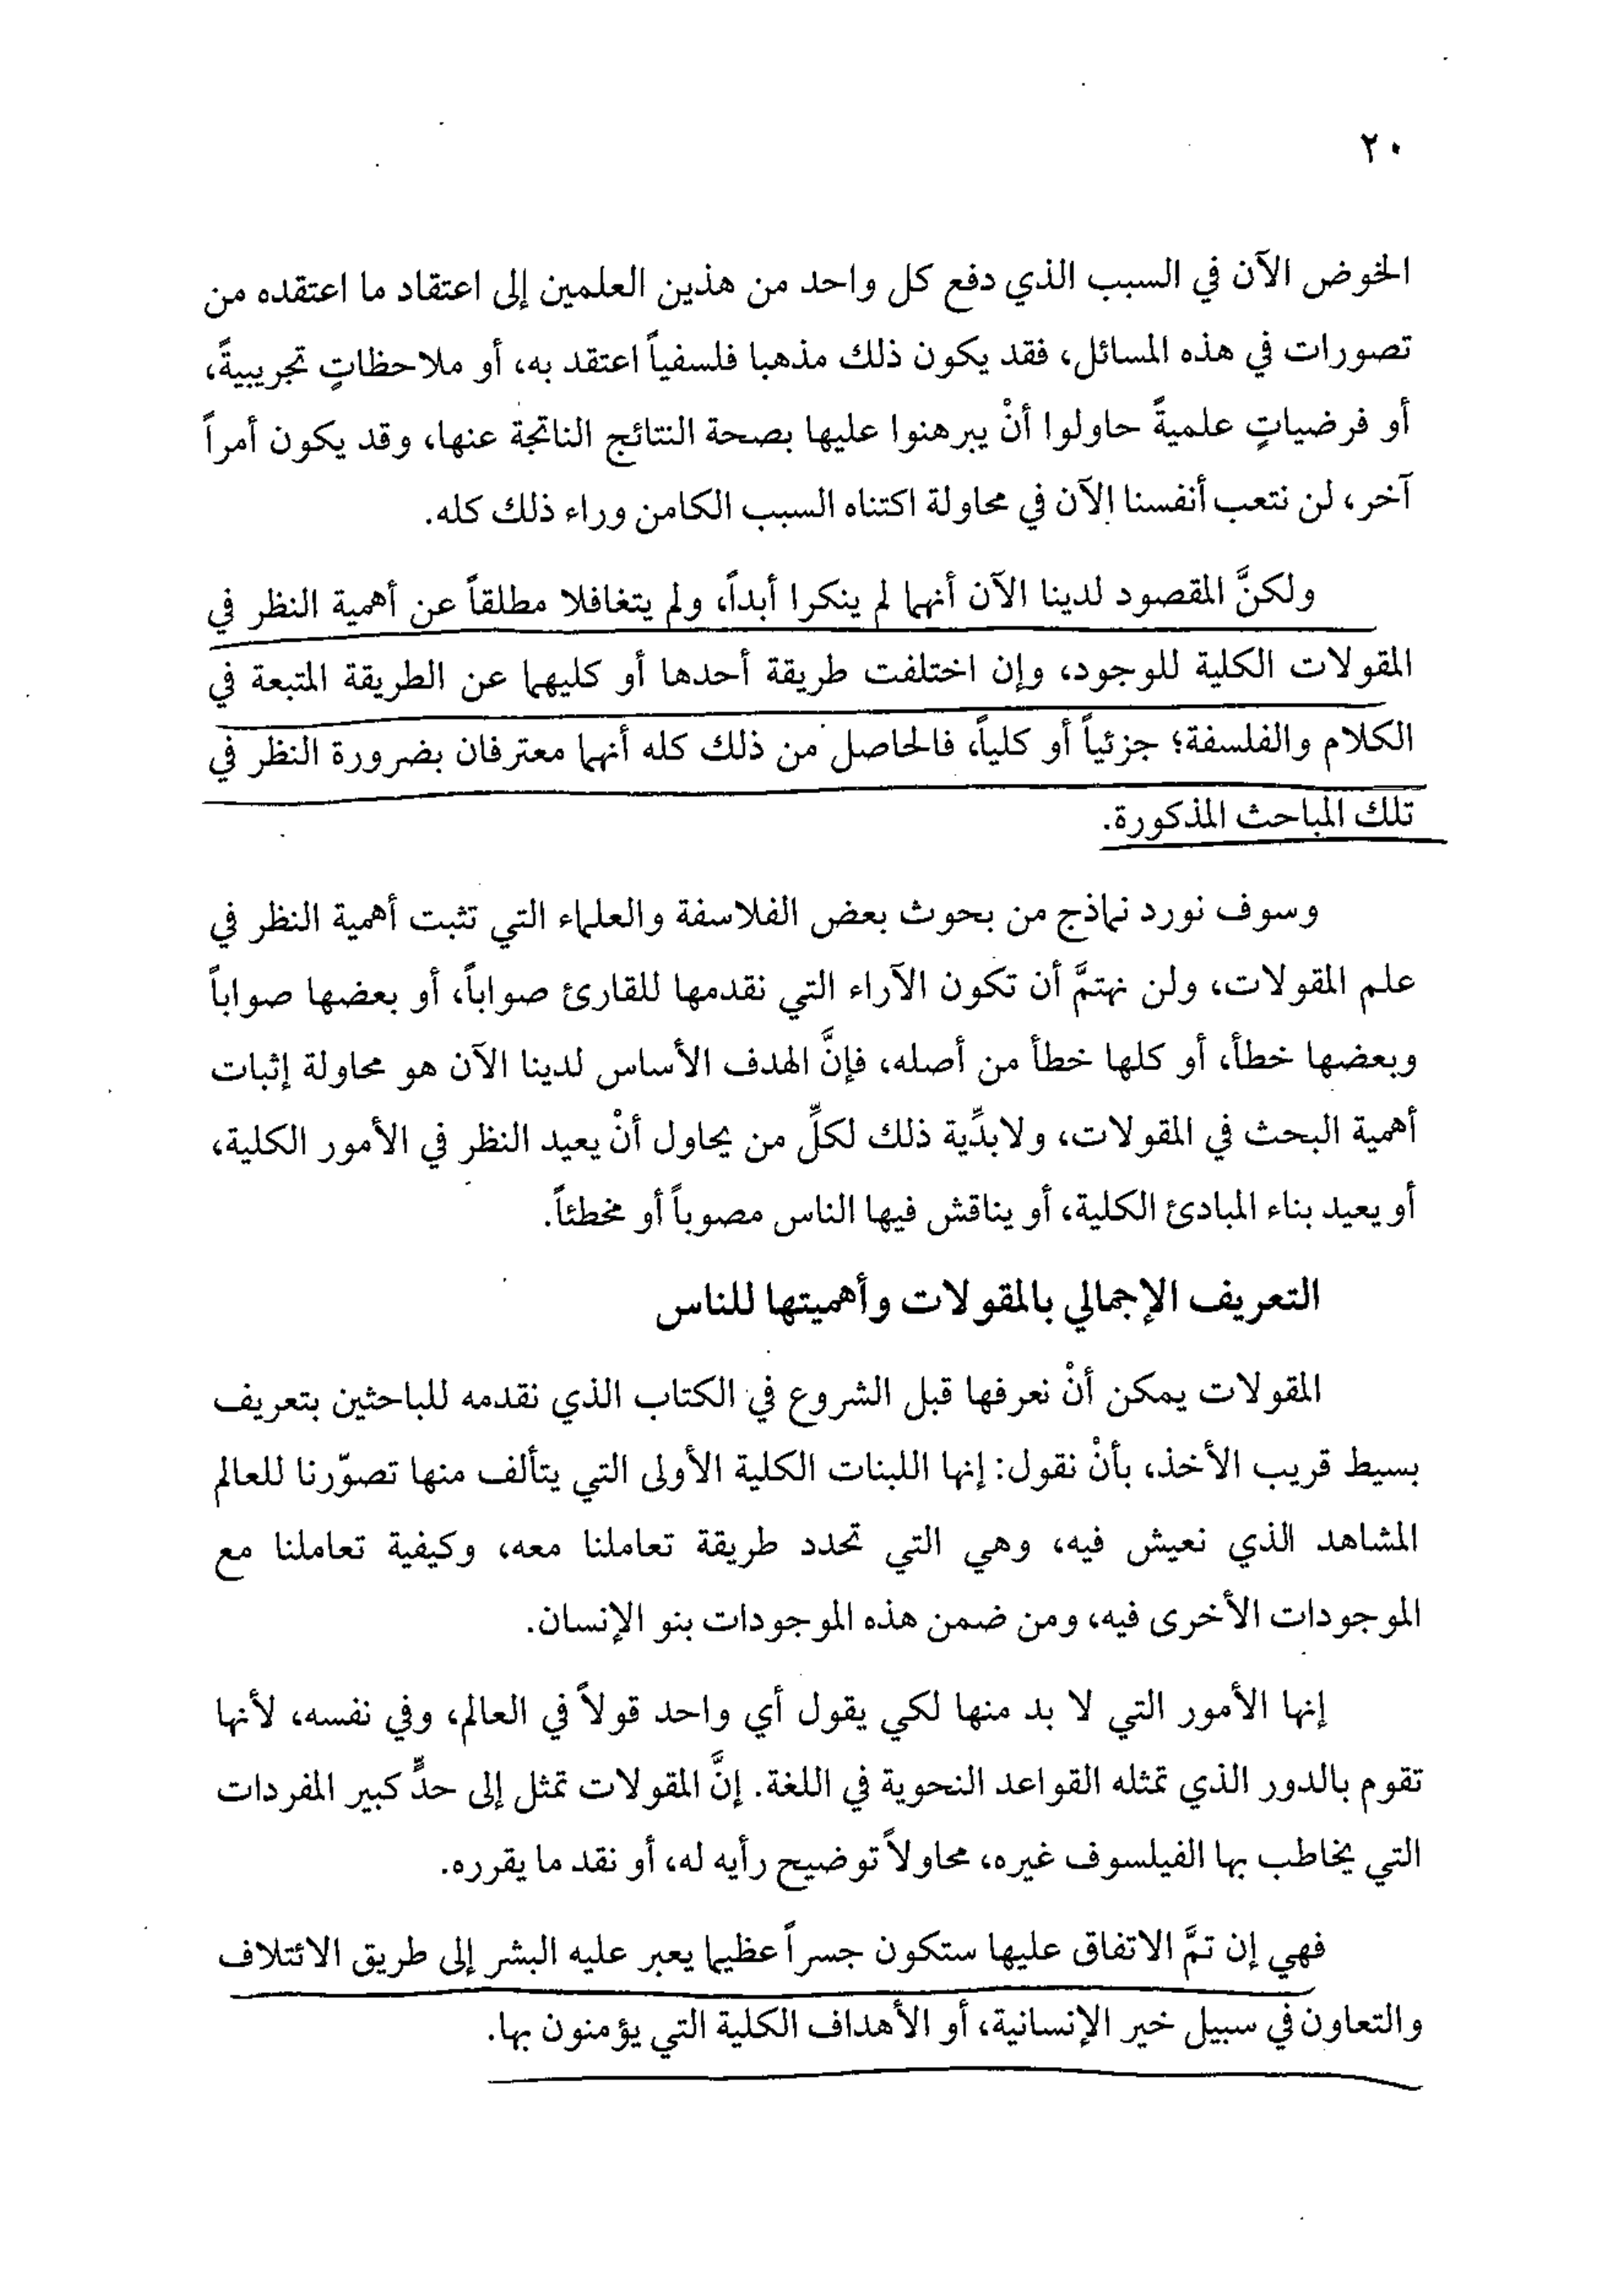 ٢٠
الخوض الآن في السبب الذي دفع كل واحد من هذين العلمين إلى اعتقاد ما اعتقده من
تصورات في هذه المسائل، فقد يكون ذلك مذهبا فلسفياً اعتقد به، أو ملاحظاتٍ تجريبيةً،
أو فرضياتٍ علميةً حاولوا أنْ يبرهنوا عليها بصحة النتائج الناتجة عنها، وقد يكون أمراً
آخر، لن نتعب أنفسنا الآن في محاولة اكتناه السبب الكامن وراء ذلك كله.
ولكنَّ المقصود لدينا الآن أنهما لم ينكرا أبداً، ولم يتغافلا مطلقاً عن أهمية النظر في
المقولات الكلية للوجود، وإن اختلفت طريقة أحدها أو كليهما عن الطريقة المتبعة في
الكلام والفلسفة؛ جزئياً أو كلياً، فالحاصل من ذلك كله أنهما معترفان بضرورة النظر في
تلك المباحث المذكورة.
وسوف نورد نماذج من بحوث بعض الفلاسفة والعلماء التي تثبت أهمية النظر في
علم المقولات، ولن نهتمَّ أن تكون الآراء التي نقدمها للقارئ صواباً، أو بعضها صواباً
وبعضها خطأ، أو كلها خطأ من أصله، فإنَّ الهدف الأساس لدينا الآن هو محاولة إثبات
أهمية البحث في المقولات، ولابدِّية ذلك لكلِّ من يحاول أنْ يعيد النظر في الأمور الكلية،
أو يعيد بناء المبادئ الكلية، أو يناقش فيها الناس مصوباً أو مخطئاً.
التعريف الإجمالي بالمقولات وأهميتها للناس
المقولات يمكن أنْ نعرفها قبل الشروع في الكتاب الذي نقدمه للباحثين بتعريف
بسيط قريب الأخذ، بأنْ نقول: إنها اللبنات الكلية الأولى التي يتألف منها تصوّرنا للعالم
المشاهد الذي نعيش فيه، وهي التي تحدد طريقة تعاملنا معه، وكيفية تعاملنا مع
الموجودات الأخرى فيه، ومن ضمن هذه الموجودات بنو الإنسان.
إنها الأمور التي لا بد منها لكي يقول أي واحد قولاً في العالم، وفي نفسه، لأنها
تقوم بالدور الذي تمثله القواعد النحوية في اللغة. إنَّ المقولات تمثل إلى حدٍّ كبير المفردات
التي يخاطب بها الفيلسوف غيره، محاولاً توضيح رأيه له، أو نقد ما يقرره.
فهي إن تمَّ الاتفاق عليها ستكون جسراً عظيما يعبر عليه البشر إلى طريق الائتلاف
والتعاون في سبيل خير الإنسانية، أو الأهداف الكلية التي يؤمنون بها.